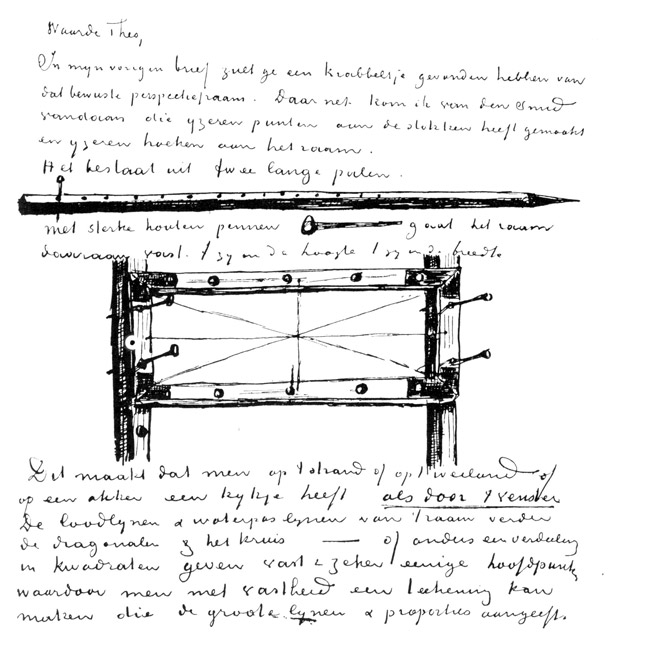 Waarde Theo,
In mijn vorigen brief zult ge een krabbeltje gevonden hebben van
dat bewuste perspectiefraam. Daar net kom ik van den smid
vandaan die yzeren punten aan de stokken heeft gemaakt
en yzeren hoeken aan het raam.
Het bestaat uit twee lange palen.
met sterke houten pennen gaat het raam
daaraan vast. 't zy in de hoogte 't zy in de breedte
Dit maakt dat men op 't strand of op 't weiland of
op een akker een kykje heeft als door 't venster
De loodlynen & waterpas lynen van 't raam verder
de diagonalen & het kruis — of anders een verdeeling
in kwadraten geven vast & zeker eenige hoofdpunten
waardoor men met vastheid een teekening kan
maken die de groote lynen & proporties aangeeft.